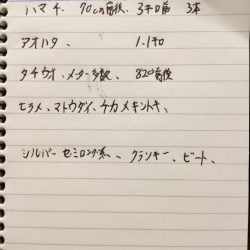 ハマチ、70cm前後、3キロ前 3本
アオハタ、 1.1キロ
タチウオ、メーター多数、820前後
ヒラメ、マトウダイ、チカメキントキ、
シルバーセミロング系、、クランキー、ビート、